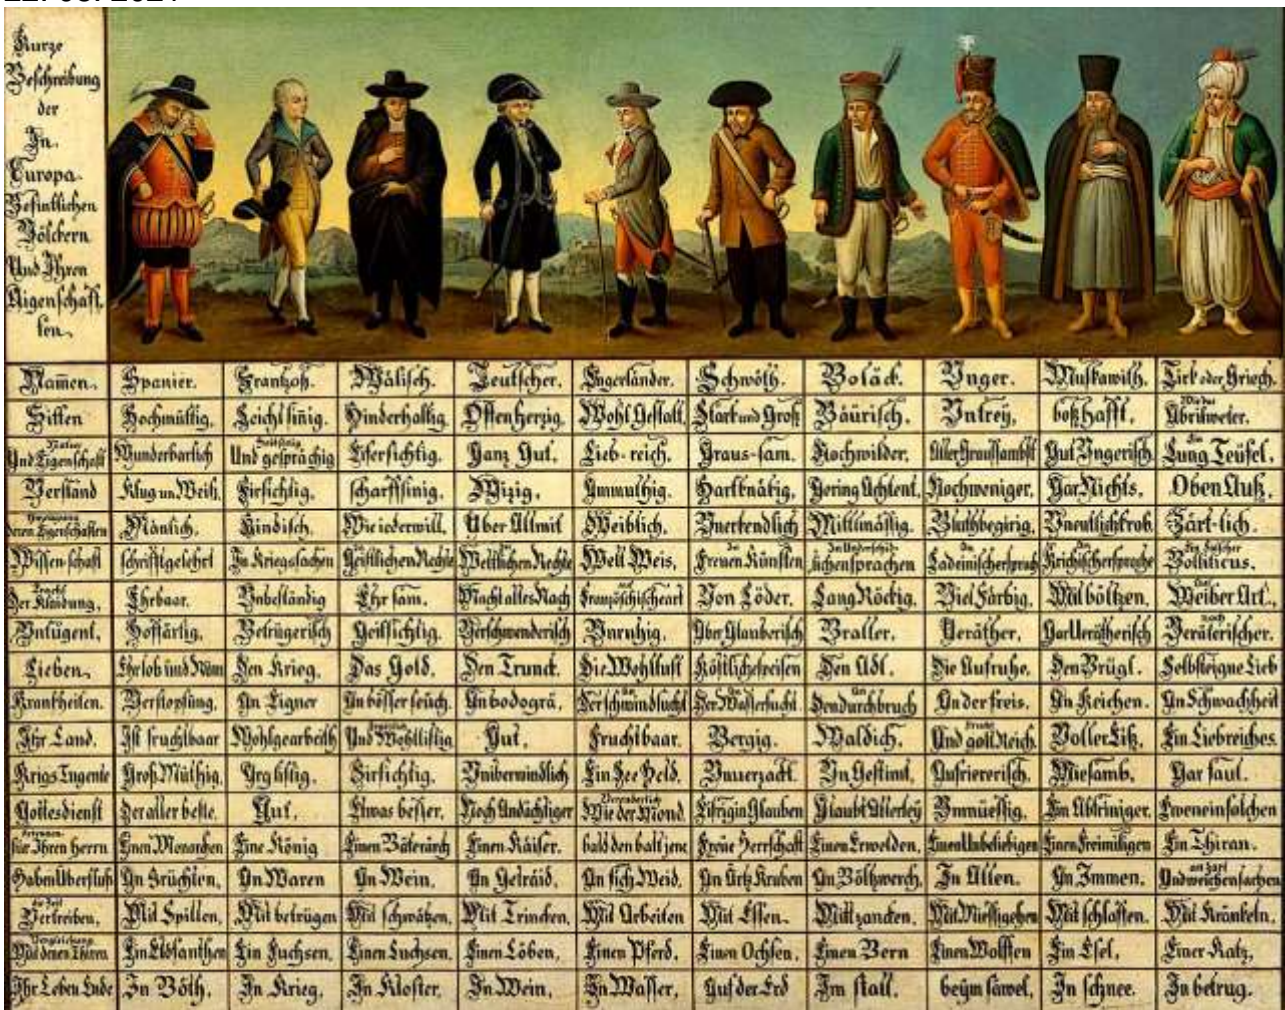 Kurze
Beschreibung
der
In
Europa
Befintlichen
Völckern
Und Ihren
Aigenschaff
ten
Namen. Spanier. Frantzoß. Wälisch. Teutscher. Engerländer. Schwöth. Boläck. Unger. Muskawith. Tirk oder Griech.
Sitten Hochmüttig. Leichtsinig. Hinderhaltig. Offenherzig. Wohl Gestalt. Starck und Groß Bäurisch. Untrey. boßhafft. Abrilweter.
Und Eigenschaft Wunderbarlich Und gesprächig Eifersichtig. Ganz Gut. Lieb-reich. Graus-sam. Nochwilder. Aller Graussambst Gut Ungerisch. Lung Teüfel.
Verstand Klug un Weiß. Firsichtig. scharffsinig. Wizig. Ammuthig. Hartknäbig. Gering Achtent. Nochweniger. Gar Nichts. Oben Auß.
deren Eigenschaften Mänlich. Kindisch. Wie iederwill. Über Allmit Weiblich. Unerkendlich Mittlmässig. Bluthbegirig. Unentlichkrob. Zärt-lich.
Wissenschaft Schrifftgelehrt In Kriegssachen Geistlichen Rechte Weltlichen Rechte Welt Weis. In Freuen Künsten In Ladeinischersprach In Krichischersprache Bolliticus.
Der Klaidung. Ehrbaar. Unbeständig Ehrsam. Macht alles Nach Französchischeart Von Löder. Lang Röckig. Vielfärbig. Mit böltzen. Weiber Art.
Untugent. Hoffärtig. Betrügerisch Geillsichtig. Verschwenderisch Unruhig. Über Glauberisch Braller. Veräther. Gar Verätherisch Verätterischer.
Lieben. Ehrlob und Rüm Den Krieg. Das Gold. Den Trunck. Die Wohllust Köstlichespeisen Den Adl. Die Aufruhe. Den Brügl. Selbsteigne Lieb
Krankheiten. Verstopfung. An Eigner An bösser seüch. An bodogrä. Der schwindsucht Der Wassersucht. Den durchbruch An der freis. An Keichen. An Schwachheit
Ihr Land. Ist fruchtbaar Wohlgearbeith Und Wohllistig Gut. Fruchtbaar. Bergig. Waldich. Und goltReich. Voller Eiß. Ein Liebreiches
Krigs Tugente Groß Müthig. Arg listig. Firsichtig. Uniberwindlich Ein See Held. Unverzacht. Un Gestimt. Aufriererisch. Miesamb. Gar faul.
Gottesdienst Der aller beste. Gut. Etwas besser. Noch Andächtiger Wie der Mond. Eifrig in Glauben Glaubt Allerley Unmüessig. Ein Abtriniger. Eweneinsolchen
für Ihren Herrn Einen Monarchen Eine König Einen Bäterärch Einen Käiser. bald den balt jene Freüe Herrschaft Einen Erwelden. Einen Unbeliebigen Einen Freimilligen Ein Thiran.
Haben Überfluß An Früchten. An Waren An Wein. An Geträid. An fich Weid. An Ärtz Kruben An Böltzwerch. In Allen. An Immen. An zart Und weichen sachen
Die Zeit Vertreiben. Mit Spillen. Mit betrügen Mit schwätzen. Mit Trincken. Mit Arbeiten Mit Essen. Mit zancken. Mit Müessigehen Mit schlaffen. Mit Kränkeln.
Vergleichung Mit denen Thiren Ein Elofanthen Ein Fuchsen. Einen Luchsen. Einen Löben. Einen Pferd. Einen Ochsen. Einen Bern Einen Wolffen Ein Esel. Einer Katz.
Ihr Leben Ende In Böth. In Krieg. In Kloster. In Wein. In Wasser. Auf der Erd Im stall. beym säwel. In schnee. In betrug.